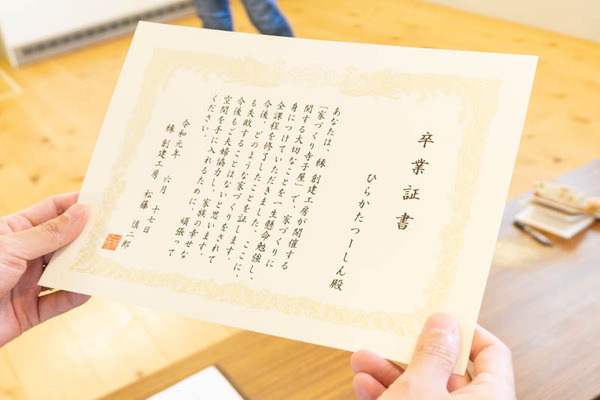 卒業証書
ひらかたつーしん殿
あなたは、㈱創建工房が開催する
「家づくり寺子屋」で、家づくりに
関する大切なことを一生懸命勉強し、
身につけていただきました。ここに、
全課程を修了したことを証します。
今後、どのような家づくりをされて
も失敗することはないと思います。
今後もご夫婦協力し、家族の幸せな
空間を手に入れるために、頑張って
ください。
令和元年 六月 十七日
㈱創建工房 松藤 慎二郎